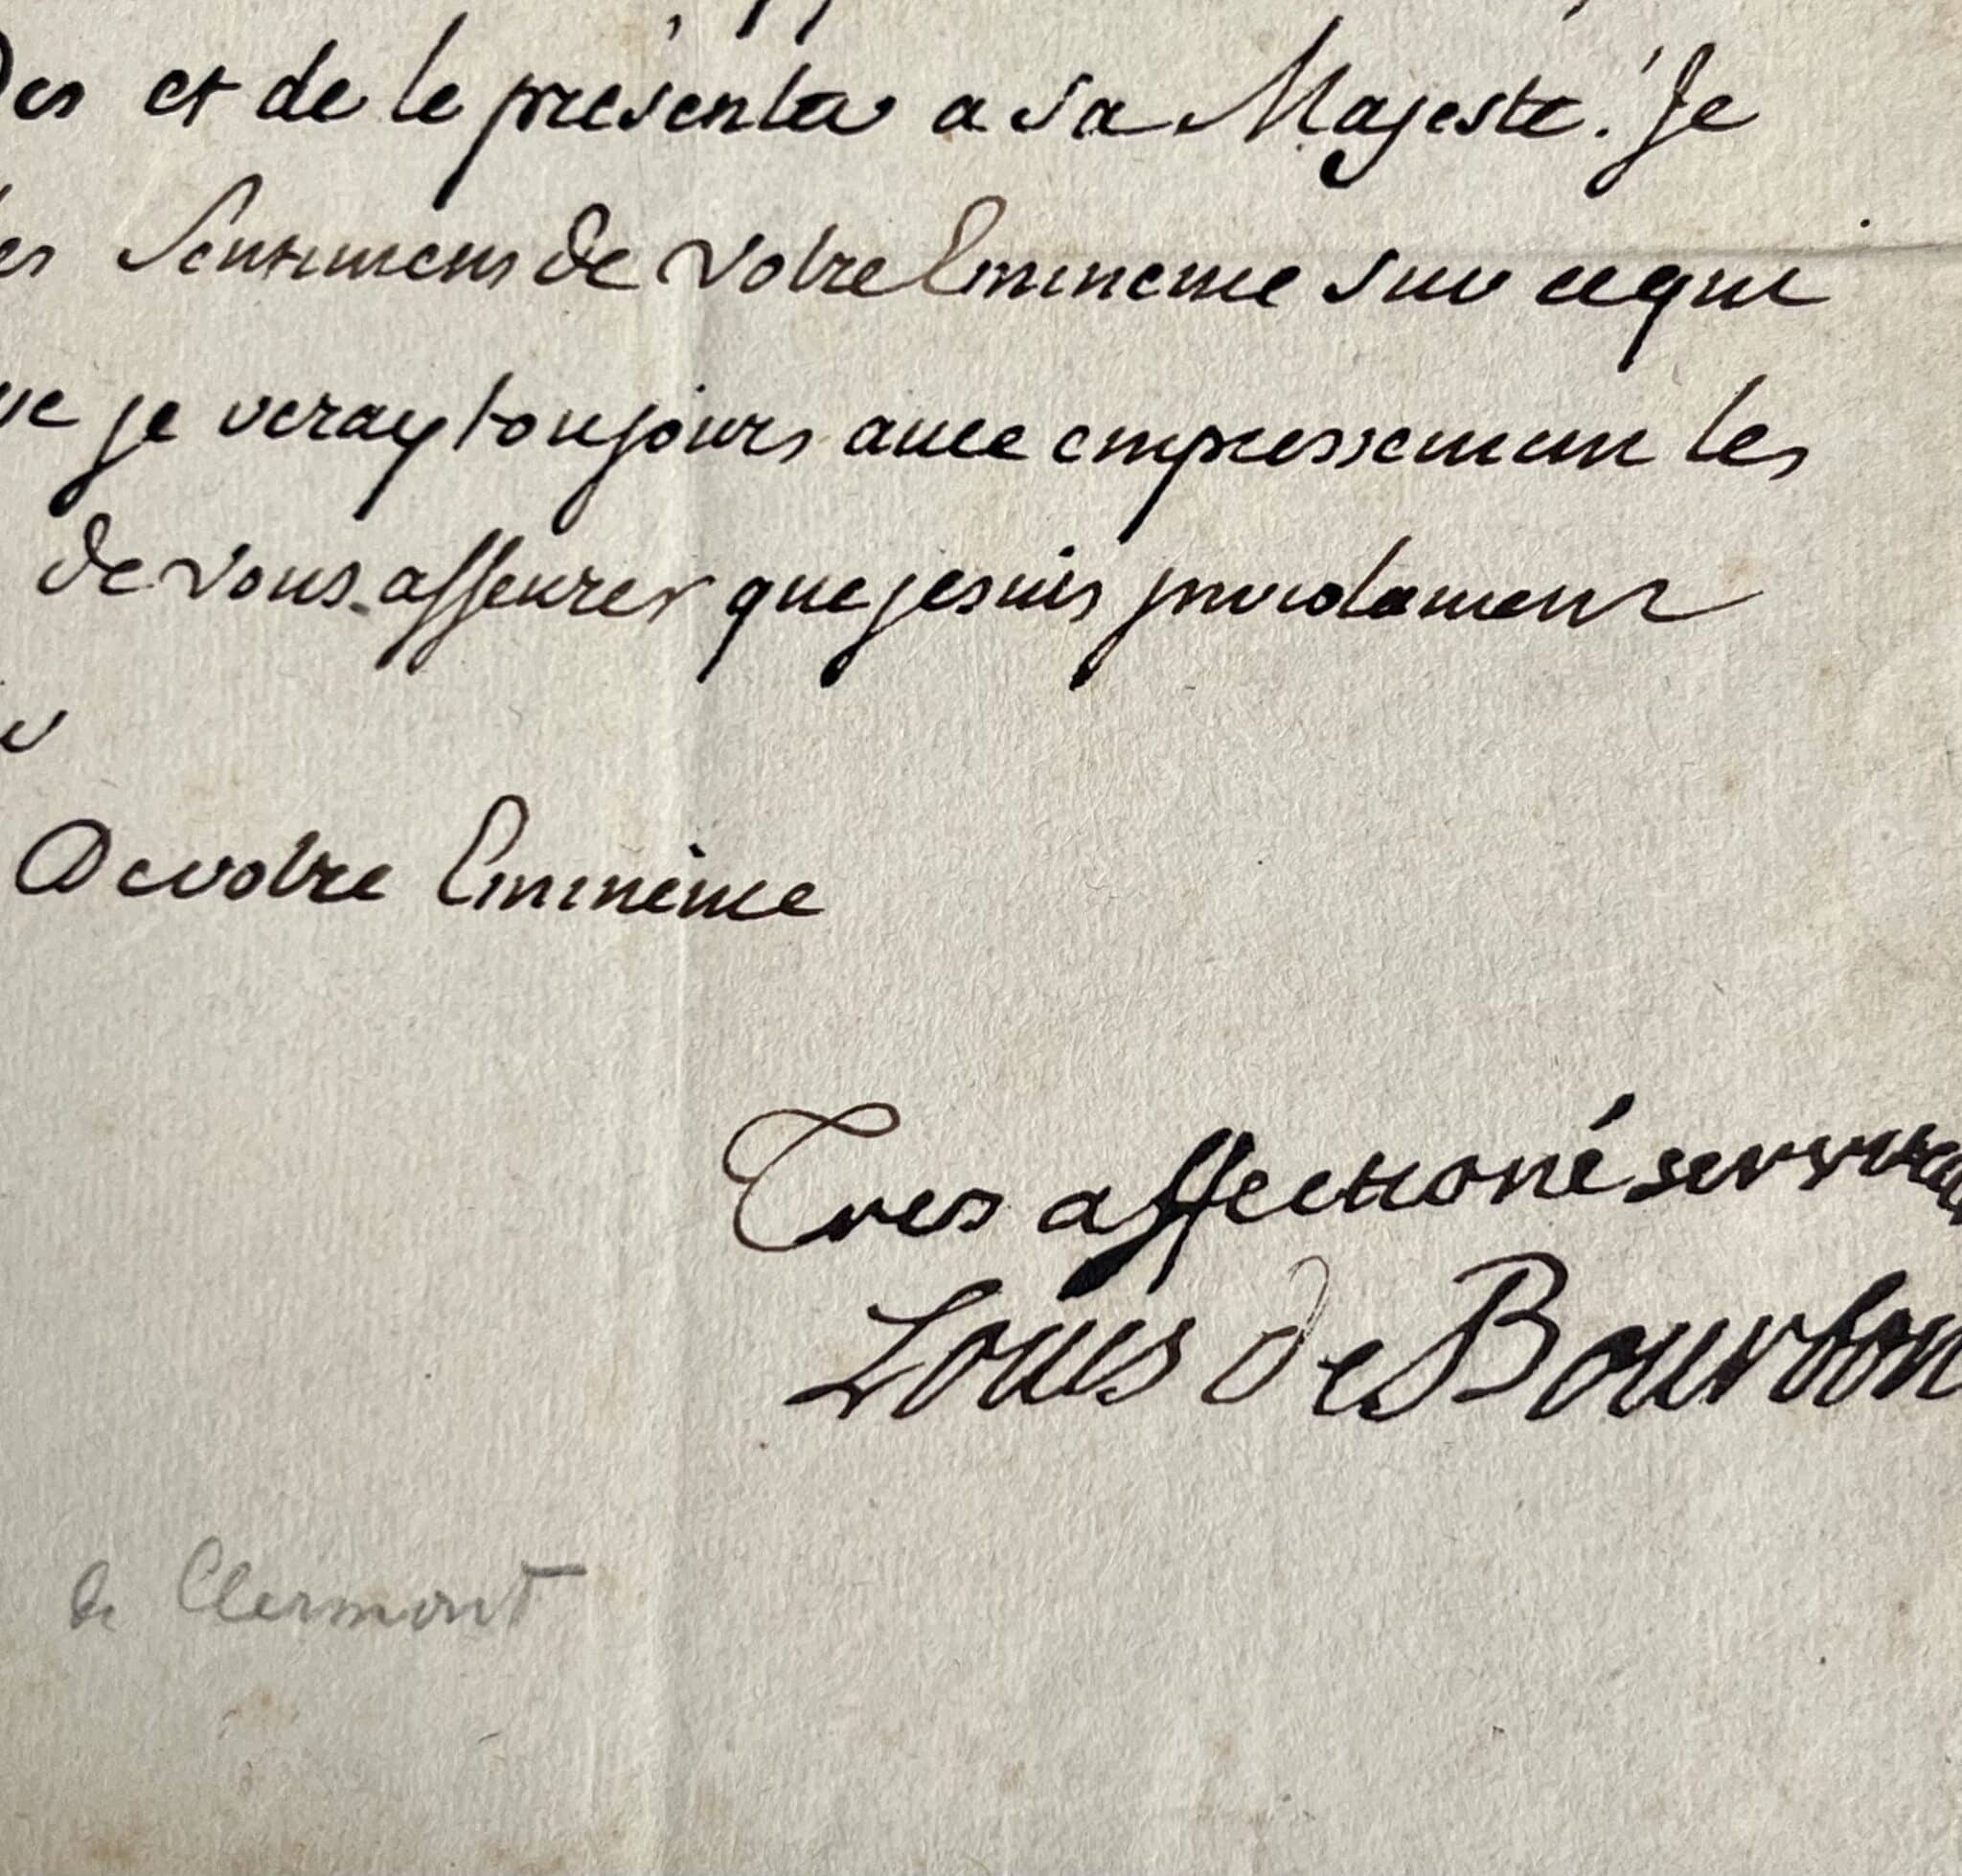 et de le présenter a sa Majesté. Je
Sentimens de Votre Eminence sur ce qui
je veray toujours avec empressement les
de vous asseurer que je suis
De votre Eminence
Tres affectioné serviteur
Louis de Bourbon
de Clermont